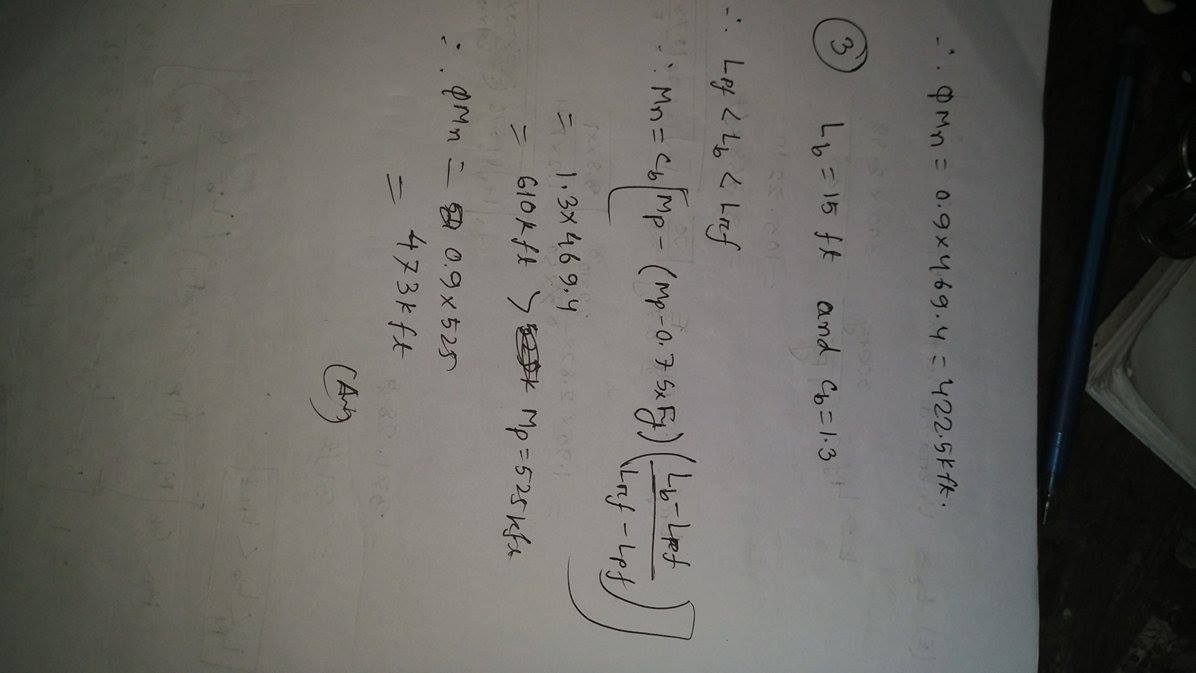 ∴ φMn = 0.9×469.4 = 422.5kft.
③ Lb = 15 ft and Cb = 1.3
∴ Lpf < Lb < Lrf
∴ Mn = Cb[Mp - (Mp - 0.7SxFy)(Lb - Lpf / Lrf - Lpf)]
= 1.3×469.4
= 610kft > Mp = 525kft
∴ φMn = 0.9×525
= 473kft
(Ans)